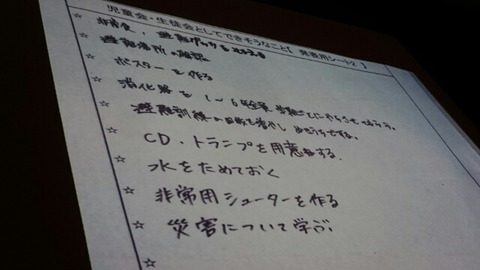 児童会・生徒会としてできそうなこと【 発表用シート2 】
☆ 非常食、避難グッズを
☆ 避難場所の確認
☆ ポスターを作る
☆ 消化器を 1〜6年全員
☆ 避難訓練の回数を増やし
☆ CD・トランプを用意する.
☆ 水をためておく
☆ 非常用シューターを作る
☆ 災害について学ぶ.
☆